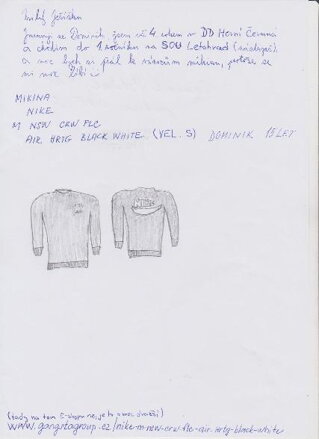 Milý Ježíšku
Jmenuji se Dominik jsem už 4 rokem v DD Horní Čermná
a chodím do 1. ročníku na SOU Letohrad
a moc bych si přál k vánocům mikinu, protože se
mi moc líbí
MIKINA
NIKE
M NSW CRW FLC
AIR HRTG BLACK WHITE (VEL. S) DOMINIK 15 LET
(tady na tom E-shopu
www.gangstagroup.cz/nike-m-nsw-crw-flc-air-hrtg-black-white